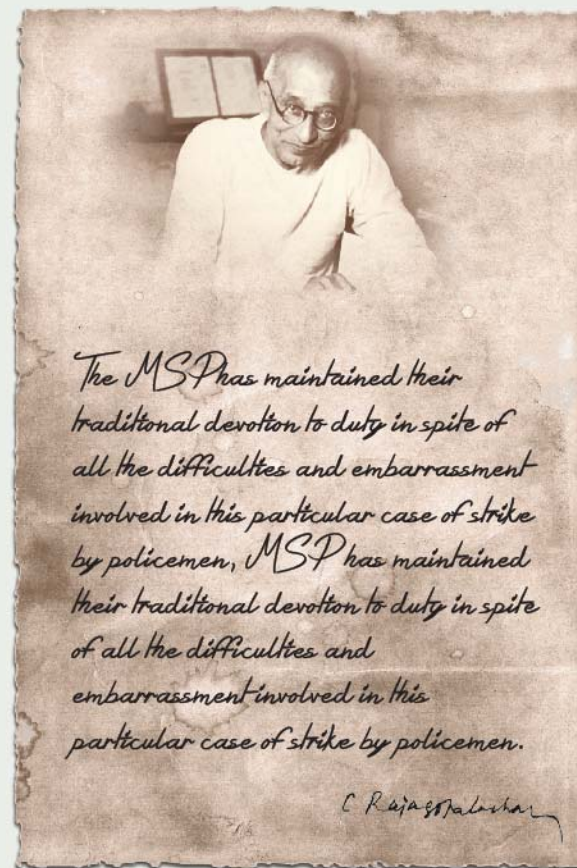 The MSP has maintained their
traditional devotion to duty in spite of
all the difficulties and embarrassment
involved in this particular case of strike
by policemen, MSP has maintained
their traditional devotion to duty in spite
of all the difficulties and
embarrassment involved in this
particular case of strike by policemen.
C Rajagopalachar